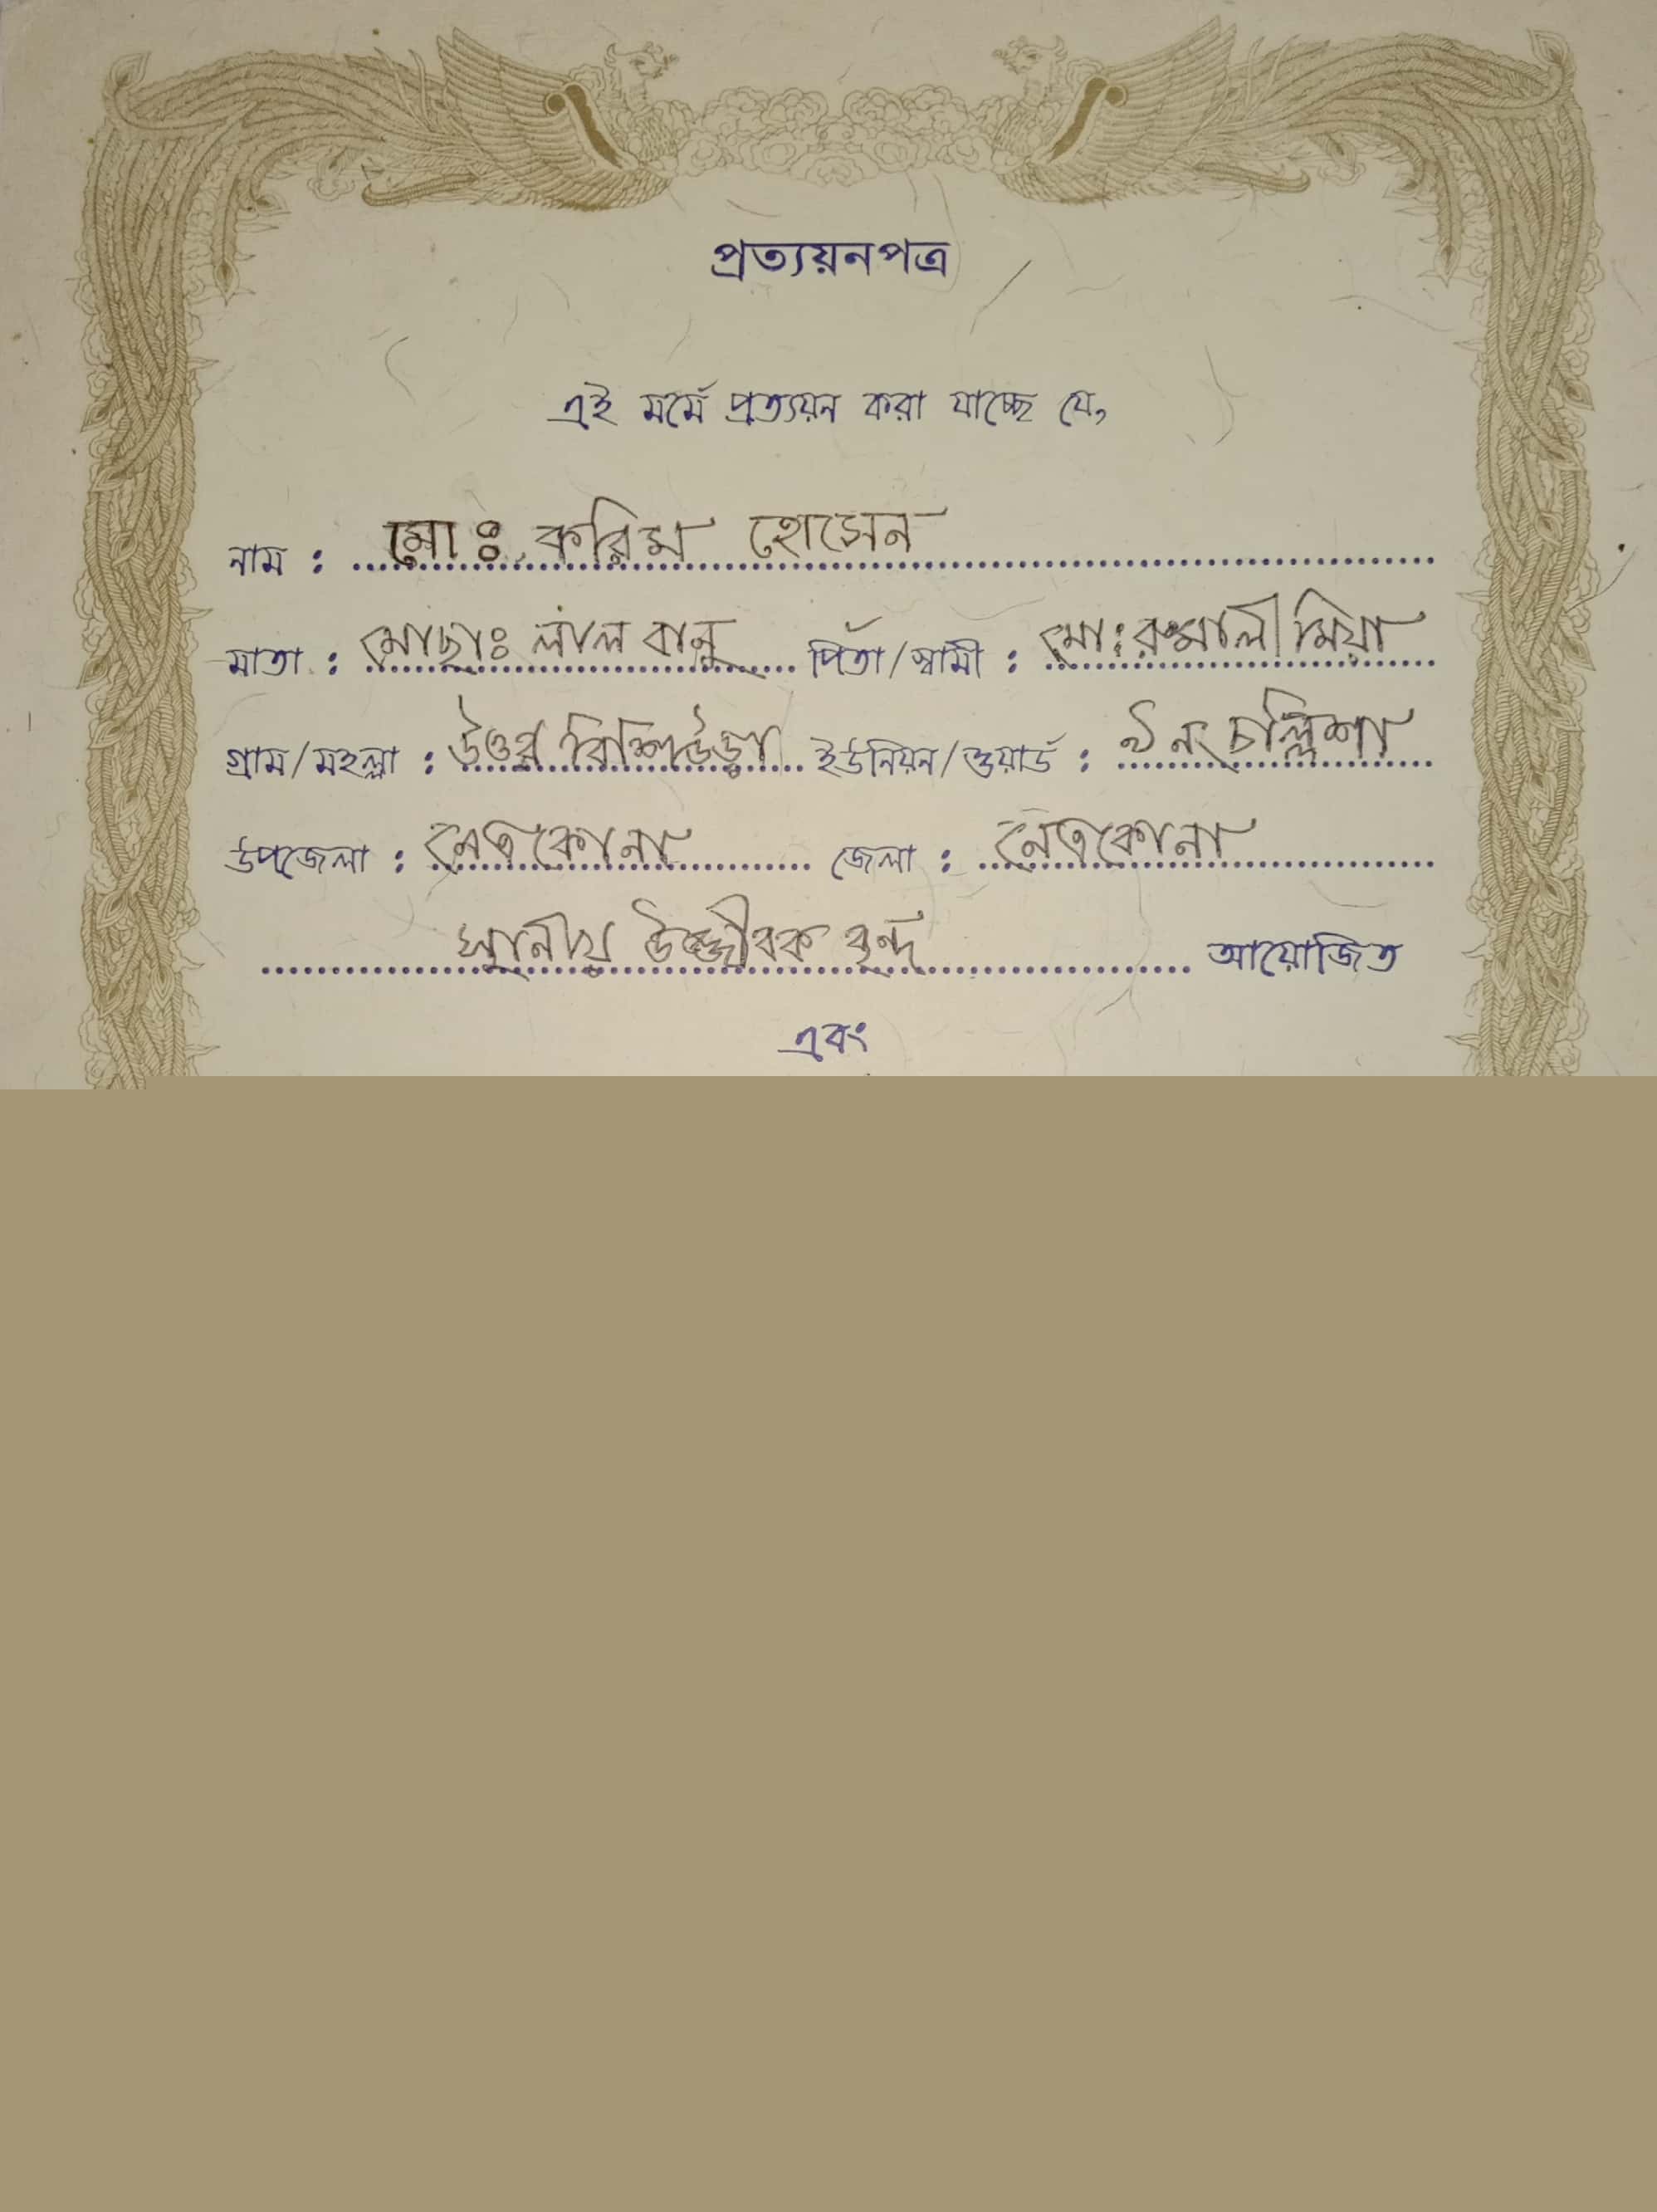 প্রত্যয়নপত্র
এই মর্মে প্রত্যয়ন করা যাচ্ছে যে,
নাম : মোঃ করিম হোসেন
মাতা : মোছাঃ লাল বানু পিতা/স্বামী : মো: রুমালী মিয়া
গ্রাম/মহল্লা : উওর বিশিউড়া ইউনিয়ন/ওয়ার্ড : ৯ নং চল্লিশা
উপজেলা : নেত্রকোনা জেলা : নেত্রকোনা
স্থানীয় উজ্জীবক বৃন্দ আয়োজিত
এবং